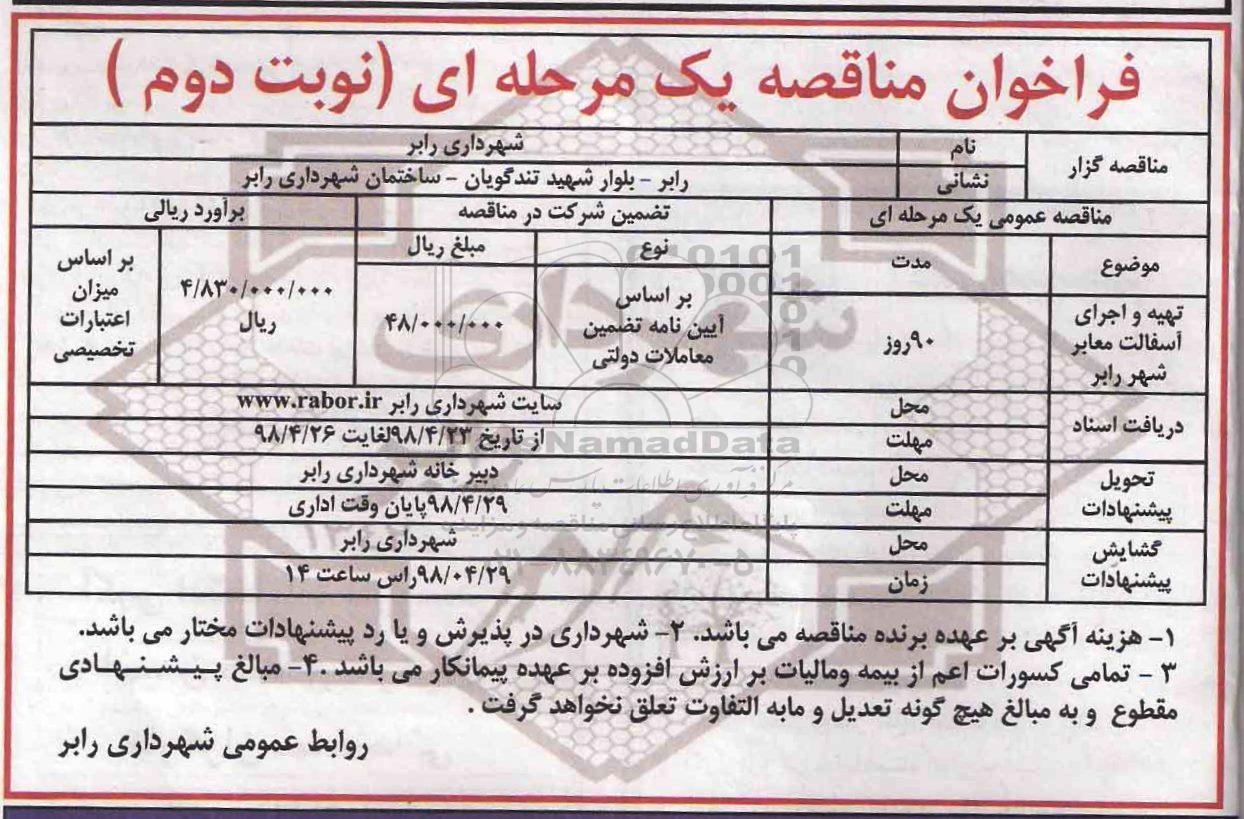 فراخوان مناقصه یک مرحله ای (نوبت دوم )
مناقصه گزار
نام
شهرداری رابر
نشانی
رابر - بلوار شهید تندگویان - ساختمان شهرداری رابر
مناقصه عمومی یک مرحله ای
تضمین شرکت در مناقصه
برآورد ریالی
موضوع
مدت
نوع
مبلغ ریال
تهیه و اجرای
آسفالت معابر
شهر رابر
۹۰روز
بر اساس
آیین نامه تضمین
معاملات دولتی
۴۸/۰۰۰/۰۰۰
۴/۸۳۰/۰۰۰/۰۰۰
ریال
بر اساس
میزان
اعتبارات
تخصیصی
دریافت اسناد
محل
سایت شهرداری رابر www.rabor.ir
مهلت
از تاریخ ۹۸/۴/۲۳لغایت ۹۸/۴/۲۶
تحویل
پیشنهادات
محل
دبیر خانه شهرداری رابر
مهلت
۹۸/۴/۲۹پایان وقت اداری
گشایش
پیشنهادات
محل
شهرداری رابر
زمان
۹۸/۰۴/۲۹راس ساعت ۱۴
۱- هزینه آگهی بر عهده برنده مناقصه می باشد. ۲- شهرداری در پذیرش و یا رد پیشنهادات مختار می باشد.
۳ - تمامی کسورات اعم از بیمه ومالیات بر ارزش افزوده بر عهده پیمانکار می باشد .۴- مبالغ پیشنهادی
مقطوع و به مبالغ هیچ گونه تعدیل و مابه التفاوت تعلق نخواهد گرفت .
روابط عمومی شهرداری رابر
شهرداری
NamadData